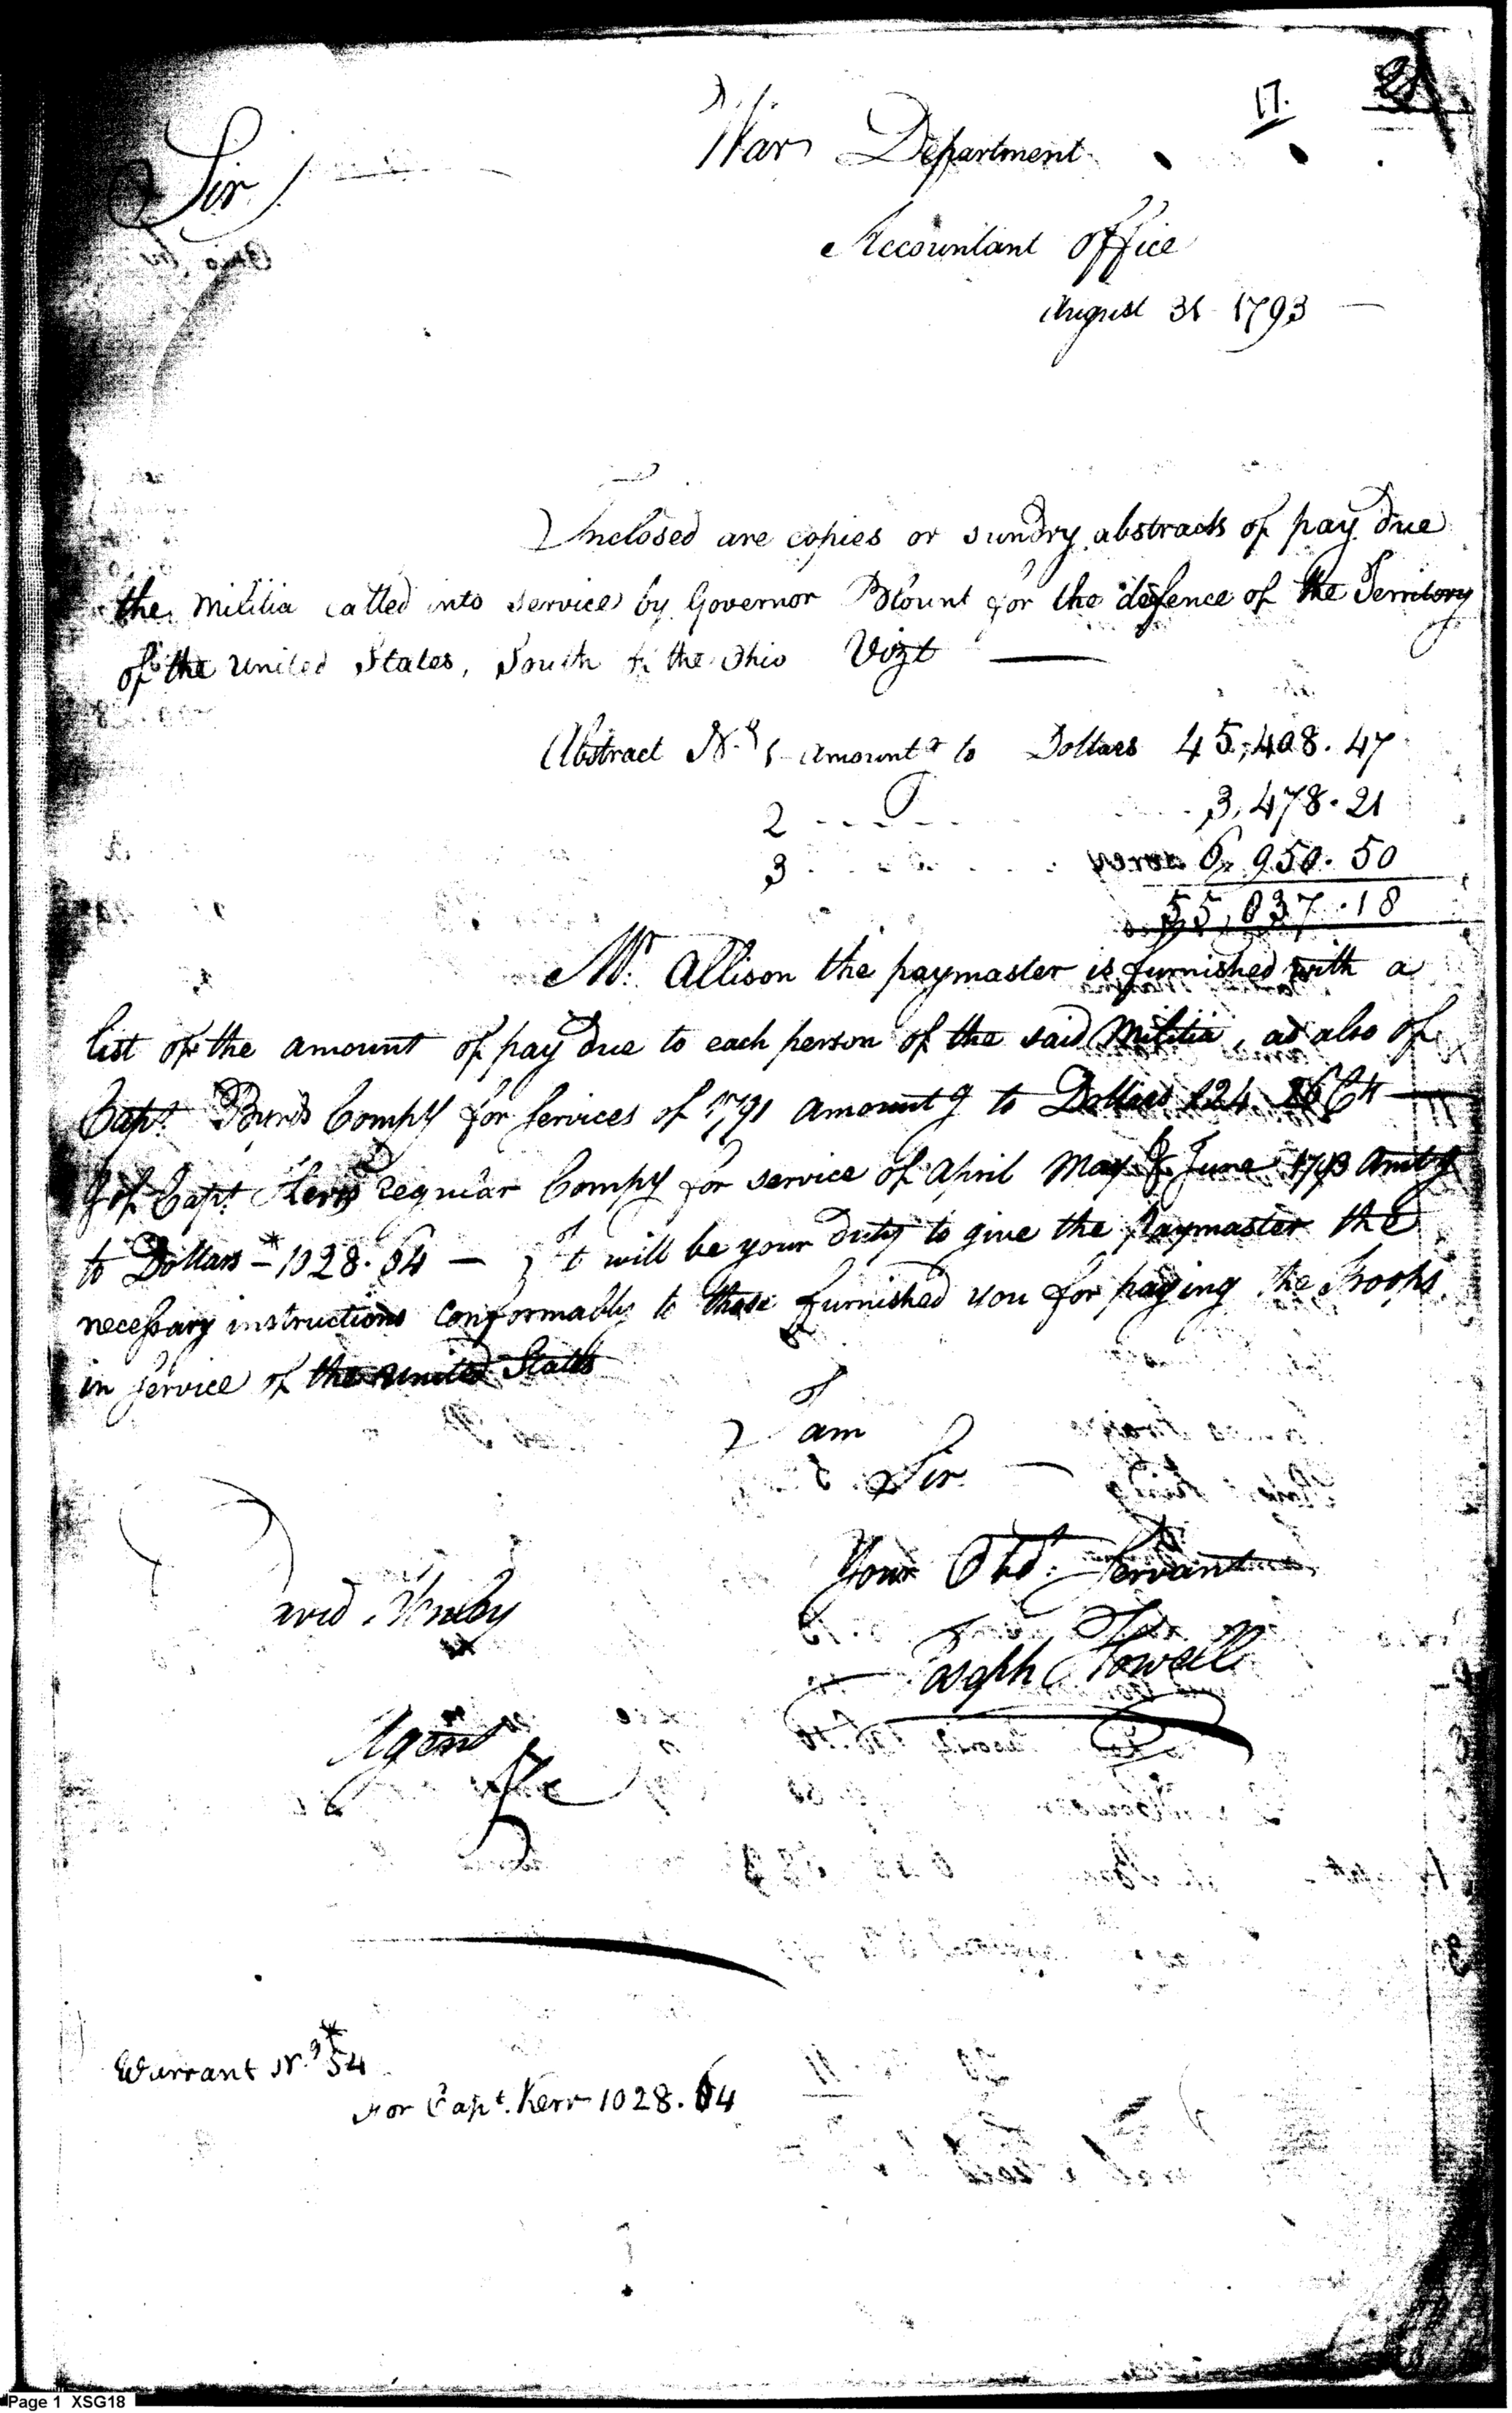 17.
War Department
Sir
Accountant office
August 31 1793
Inclosed are copies or sundry abstracts of pay due
the Militia called into service by Governor Blount for the defence of the Territory
of the United States, South of the Ohio Vizt
Abstract No. 1 amountg to Dollars 45,408.47
2 3,478.21
3 6,950.50
55,837.18
Mr. Allison the paymaster is furnished with a
list of the amount of pay due to each person of the said Militia, as also of
Capt. Byrds Compy for services of 1791 amountg to Dollars 124 26 Cts
& of Capt. Kerrs regular Compy for service of April May & June 1793 amtg
to Dollars * 1028.64 It will be your duty to give the Paymaster the
necessary instructions conformably to those furnished you for paying the Troops
in Service of the United States
I am
Sir
Your Obd. Servant
David Henley
Joseph Howell
Agent
&c
Warrant No. * 54
For Capt. Kerr 1028.64
Page 1 XSG18